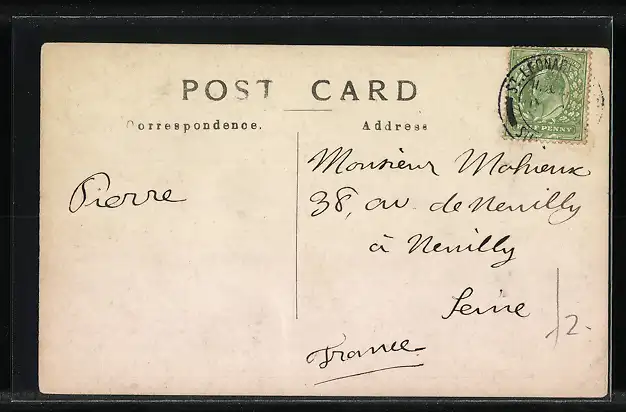 POST CARD
Correspondence.
Address
ST LEONARDS
PENNY
Pierre
Monsieur Mahieux
38, av. de Neuilly
à Neuilly
Seine
France
12-